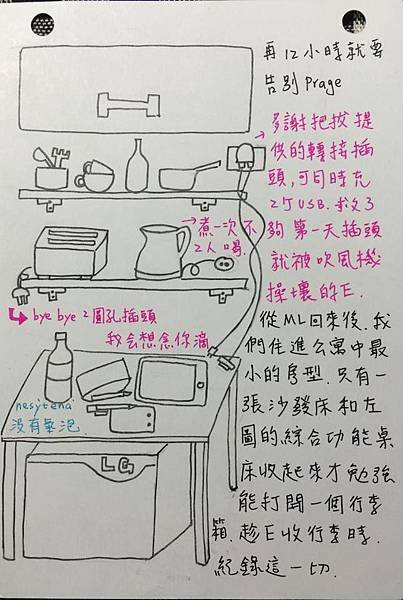 再12小時就要
告別 Prage
多謝把拔提
供的轉接插
頭,可同時充
2个USB.救了
第一天插頭
就被吹風機
操壞的E.
煮一次不夠
2人喝.
bye bye 2圓孔插頭
我会想念你滴
nesytena
没有氣泡.
LG
從ML回來後.我
們住進公寓中最
小的房型.只有一
張沙發床和左
圖的綜合功能桌
床收起來才勉強
能打開一個行李
箱.趁E收行李時.
紀錄這一切.